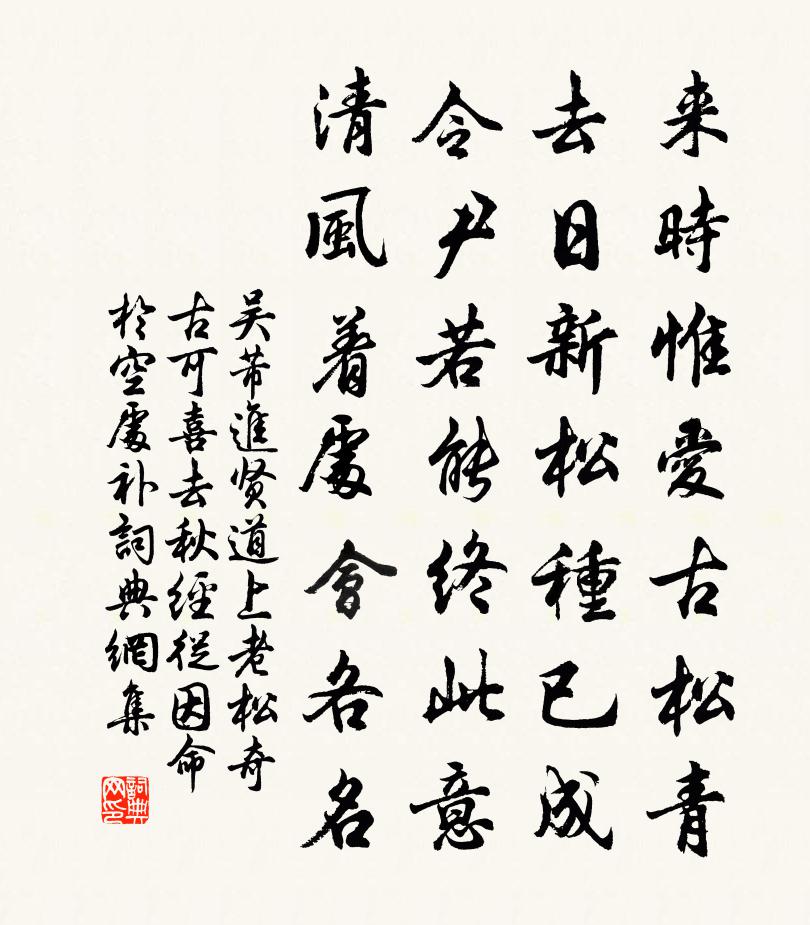 来時惟愛古松青
去日新松種已成
令尹若能終此意
清風着處會各名
吴芾進贤道上老松奇
古可喜去秋經從因命
於空處补詞典網集
詞典網印